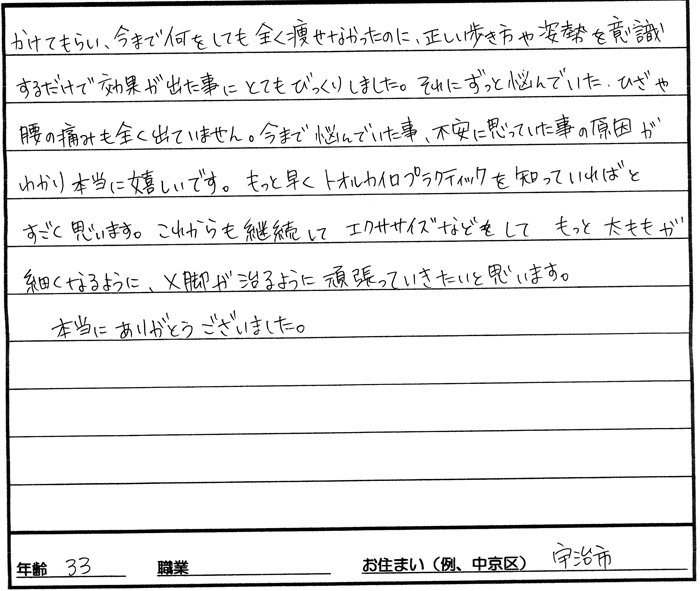 かけてもらい、今まで何をしても全く痩せなかったのに、正しい歩き方や姿勢を意識
するだけで効果が出た事にとてもびっくりしました。それにずっと悩んでいた、ひざや
腰の痛みも全く出ていません。今まで悩んでいた事、不安に思っていた事の原因が
わかり本当に嬉しいです。もっと早くトオルカイロプラクティックを知っていればと
すごく思います。これからも継続してエクササイズなどをしてもっと太ももが
細くなるように、X脚が治るように頑張っていきたいと思います。
本当にありがとうございました。
年齢 33 職業 お住まい（例、中京区） 宇治市